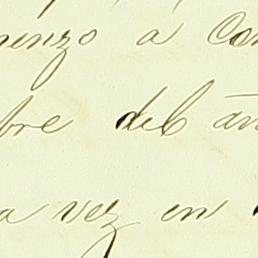 menzo a con
bre del an
a vez en